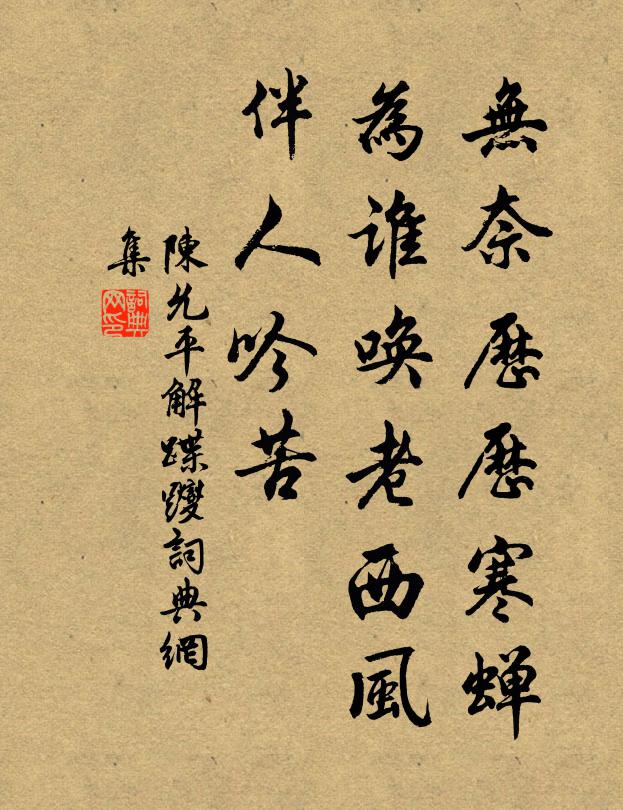 無奈歷歷寒蟬
為誰喚老西風
伴人吟苦
陳允平解蹀躞詞典網
集
詞典
网印